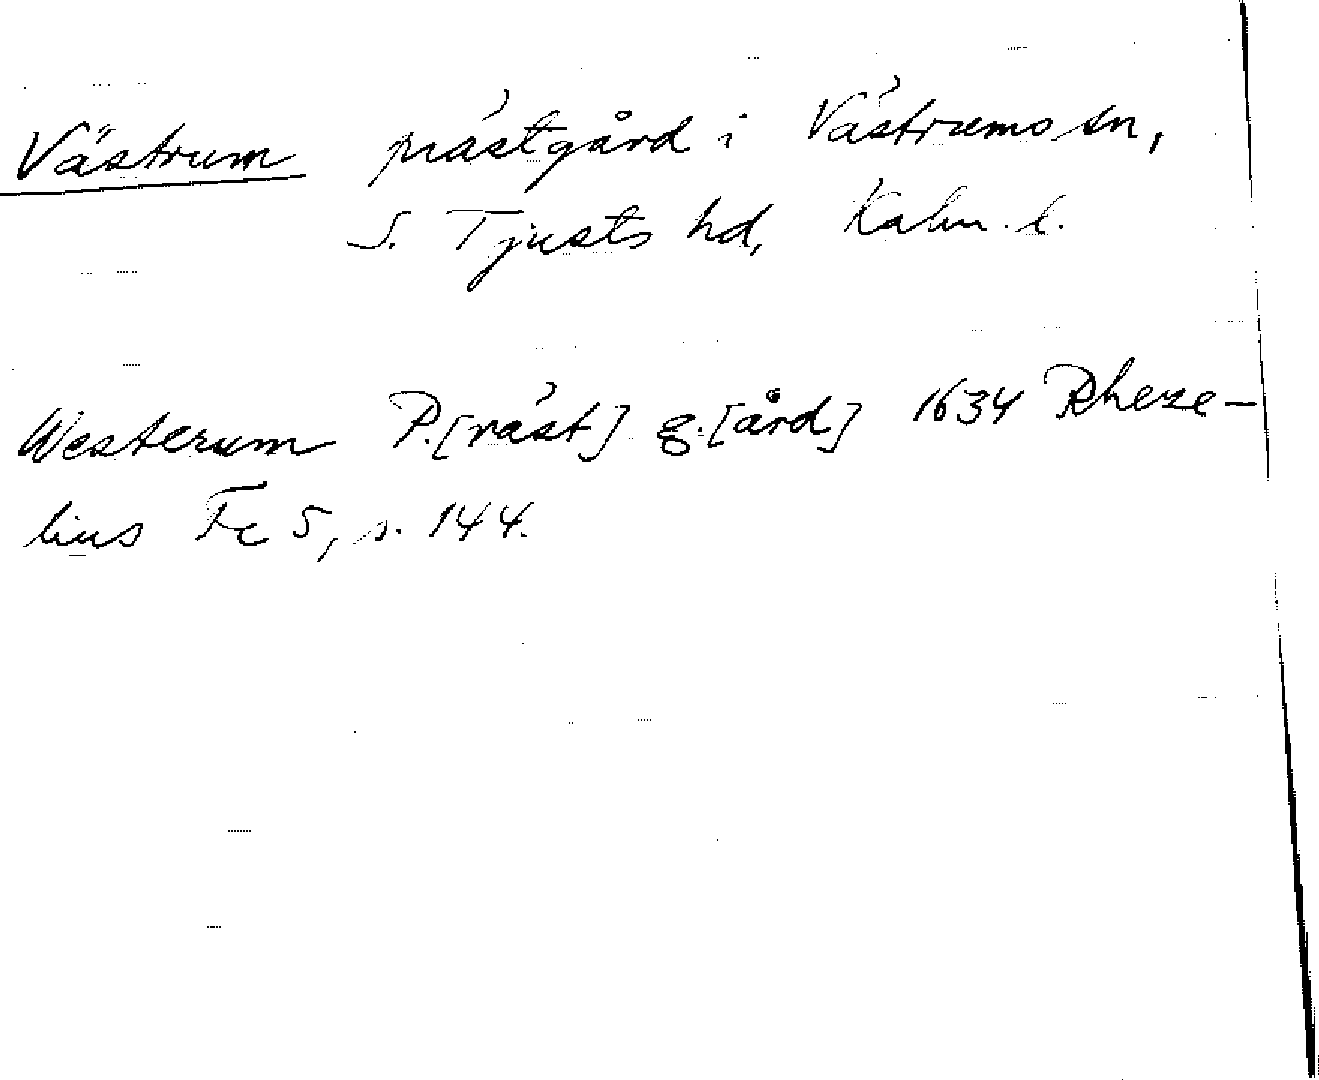 Västrum prästgård i Västrums sn,
S. Tjusts hd, Kalm. l.
Westerum P.[räst] g.[ård] 1634 Rheze-
lius Fc 5, s. 144.